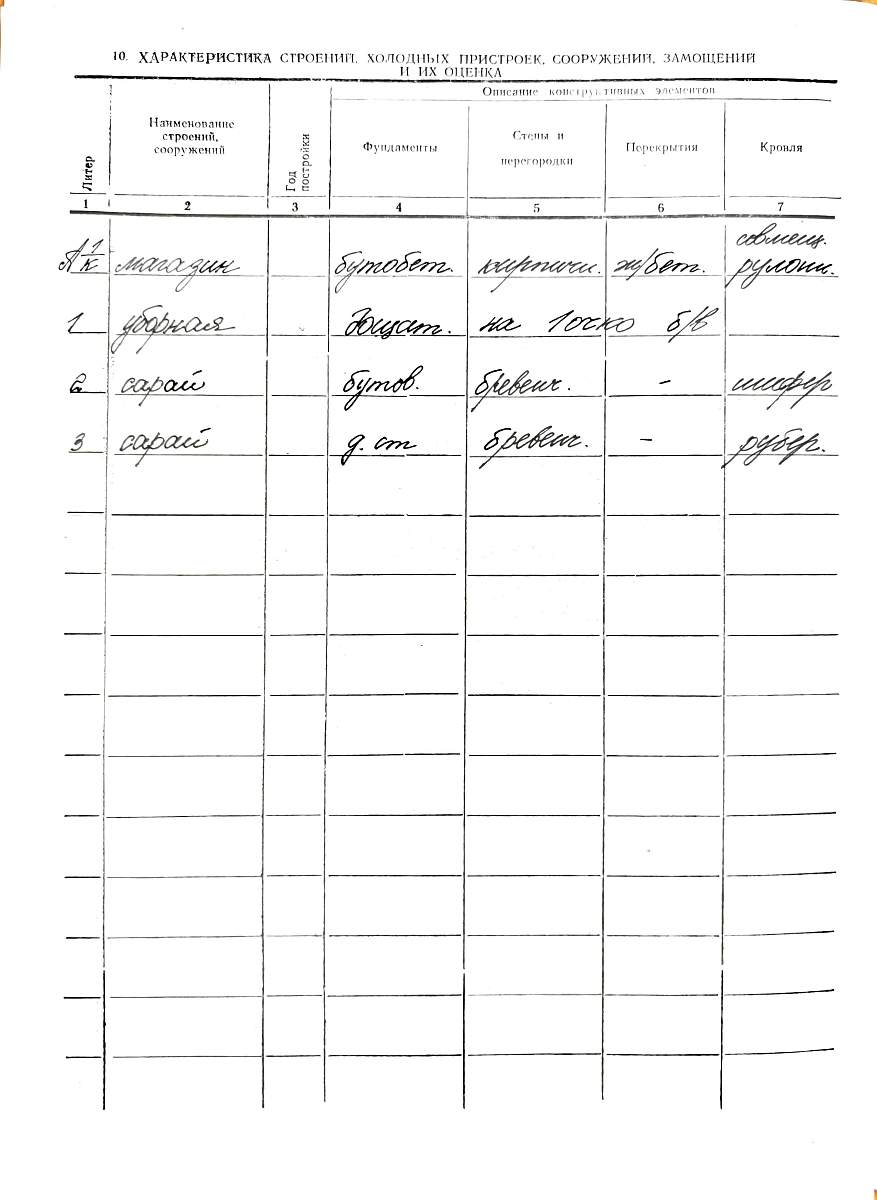 10. ХАРАКТЕРИСТИКА СТРОЕНИЙ, ХОЛОДНЫХ ПРИСТРОЕК, СООРУЖЕНИЙ, ЗАМОЩЕНИЙ
И ИХ ОЦЕНКА
Литер
Наименование
строений,
сооружений
Год
постройки
Описание конструктивных элементов
Фундаменты
Стены и
перегородки
Перекрытия
Кровля
1 2 3 4 5 6 7
совмещ.
А 1/к магазин бутобет. кирпичн. ж/бет. рулонн.
1 уборная дощат. на 1 очко б/в
2 сарай бутов. бревенч. - шифер
3 сарай д. ст бревенч. - рубер.